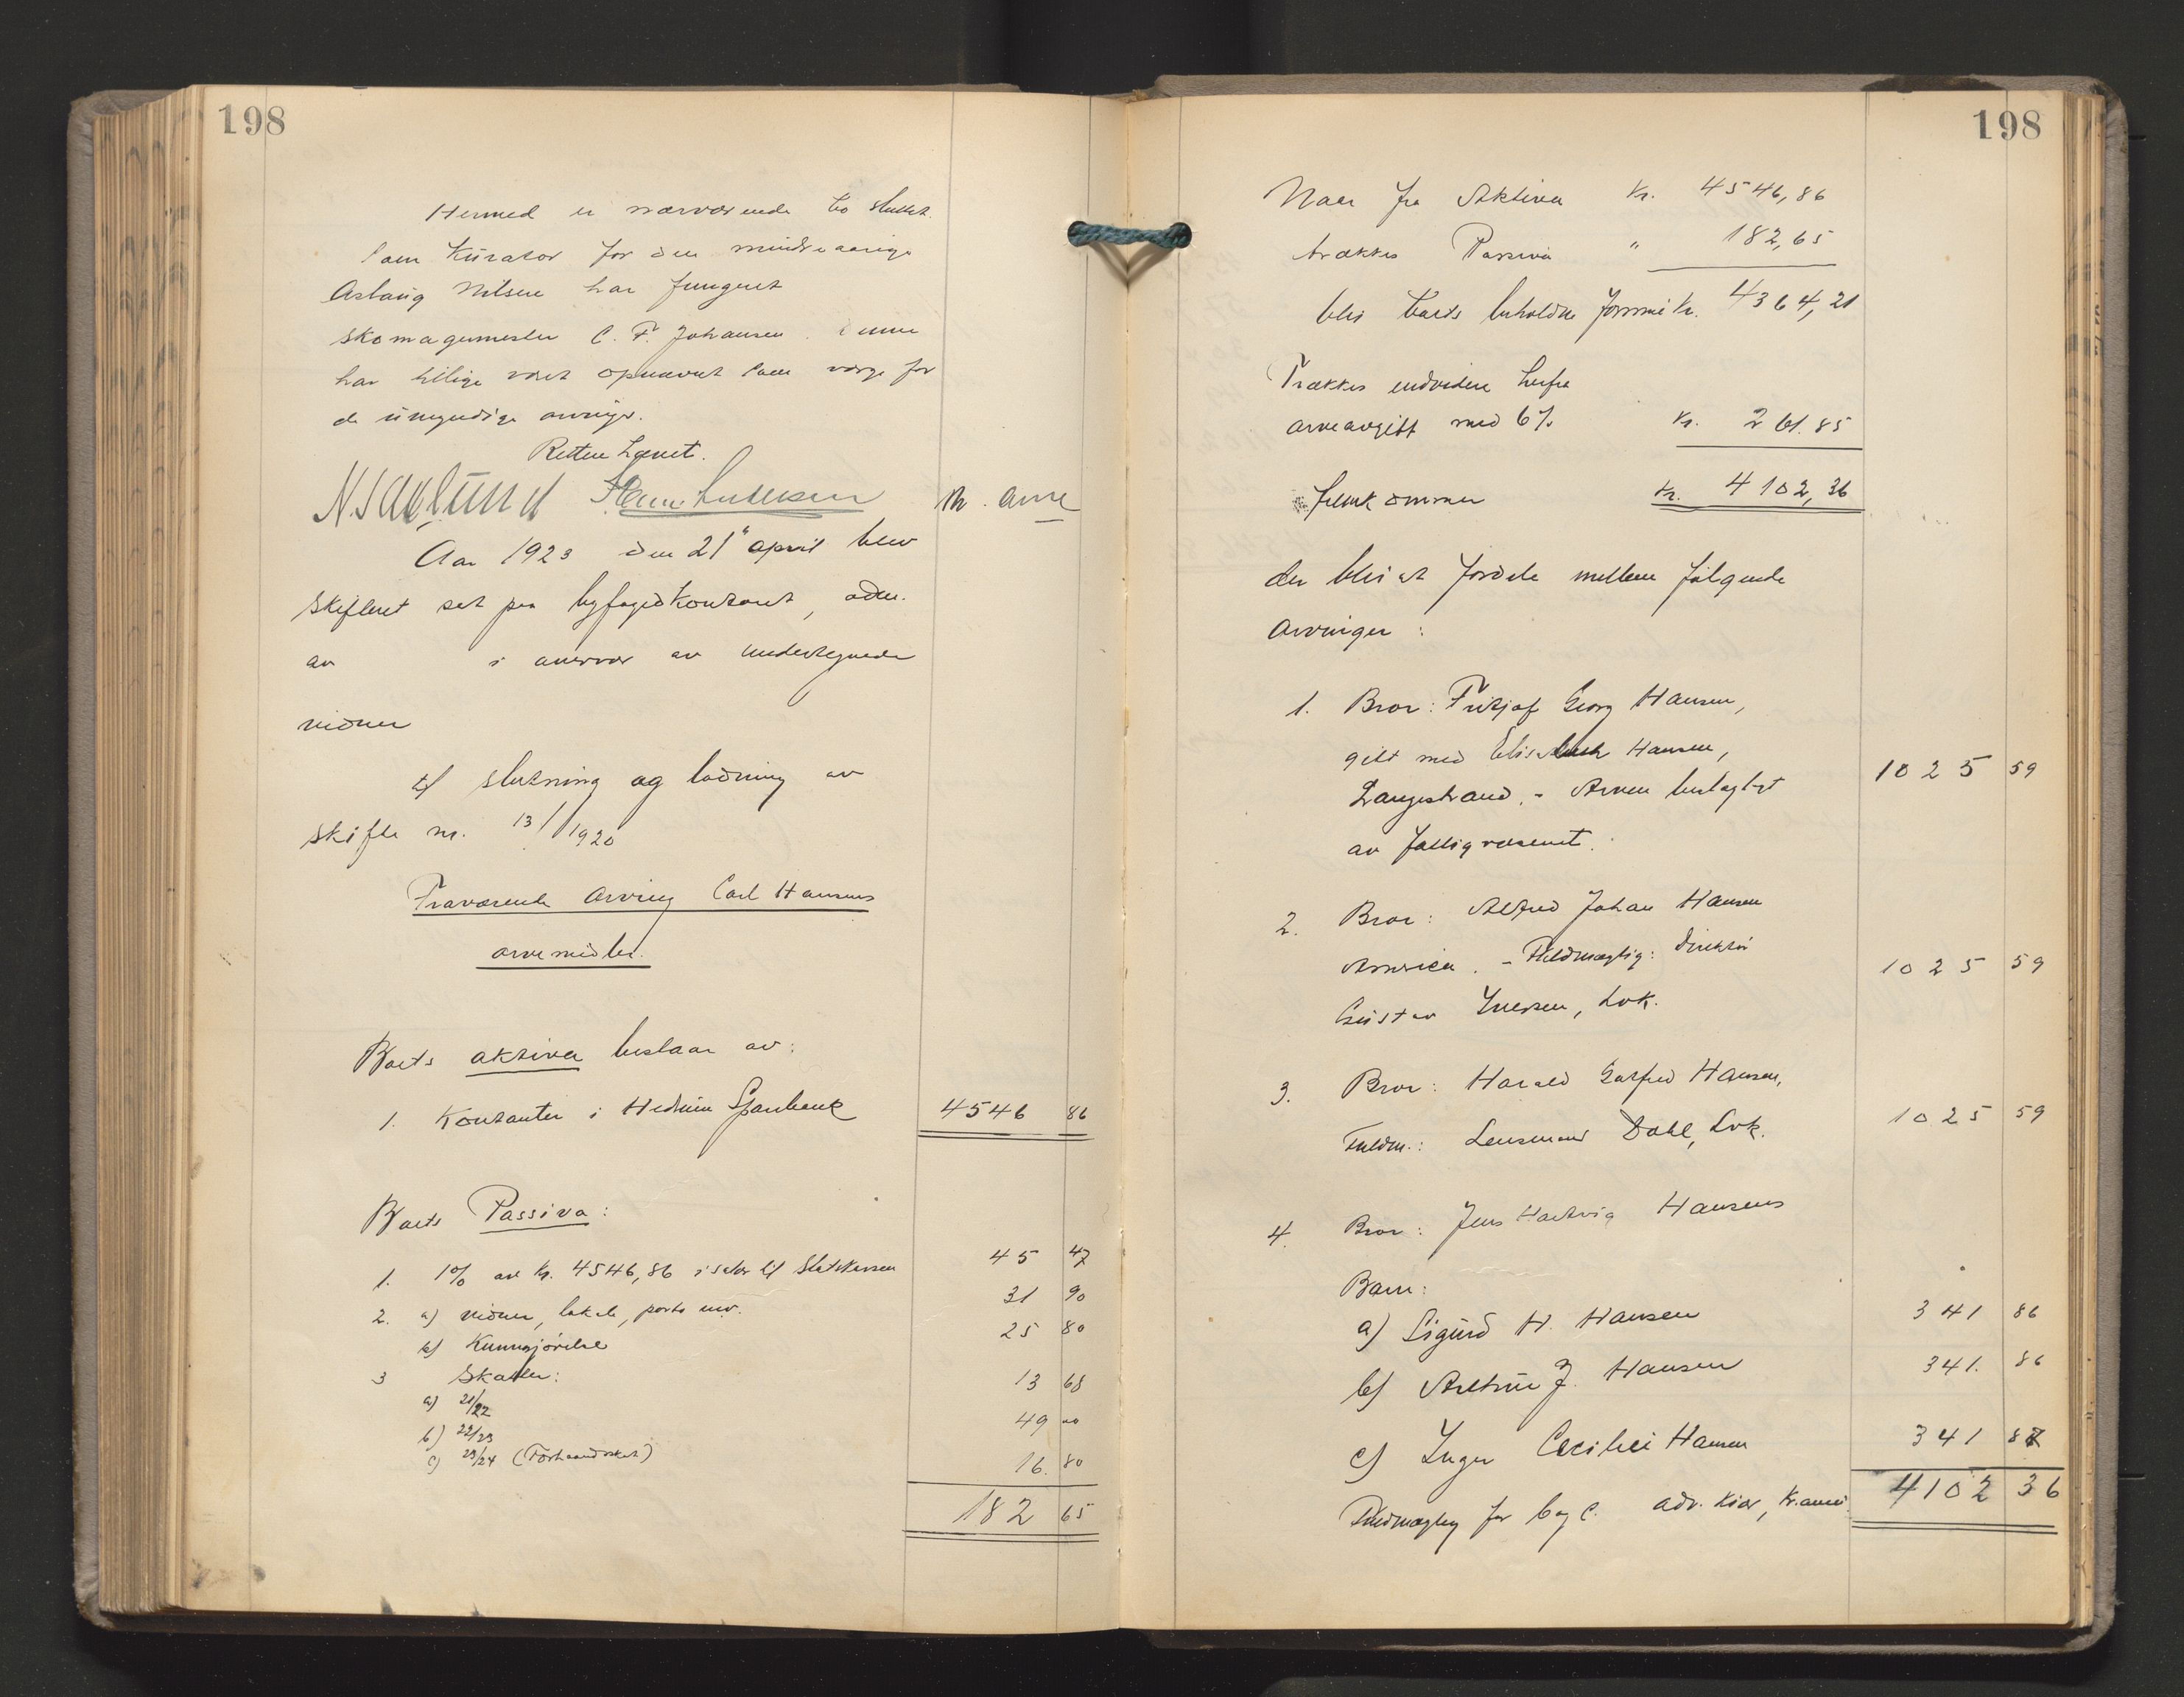 198
Hermed er nærværende bo sluttet.
Som Kurator for den mindreaarige
Aslaug Nilsen har fungert
skomagermester C. F. Johansen. Denne
har tillige været opnævnt som verge for
de umyndige arvinger.
Retten hævet.
Aar 1923 den 21" april blev
Skifteret sat paa byfogedkontoret, adm.
av i overvær av undertegnede
vidner
til slutning og lodning av
skifte nr. 13/1920
Fraværende arving Carl Hansens
arvemidler.
Boets aktiva bestaar av:
1. Kontanter i Hedrum Sparebank 4546 86
Boets Passiva:
1. 1% av kr. 4546,86 i salær til Statskassen 45 47
2. a) vidner, lokale, porto mv. 31 90
b) Kunngjørelse 25 80
3 Skatter:
a) 21/22 13 68
b) 22/23 49 00
c) 23/24 (Forhaandsskat) 16. 80
182 65
198
Naar fra Aktiva kr. 4546,86
trækkes Passiva " 182,65
blir boets beholdne formue kr. 4364,21
Trækkes endvidere herfra
arveavgift med 6% kr. 261.85
fremkommer kr. 4102,36
der blir at fordele mellem følgende
Arvinger:
1. Bror: Fritjof Georg Hansen,
gift med Elisabeth Hansen,
Langestrand. - Arven beslaglagt 1025 59
av fattigvæsenet.
2. Bror: Alfred Johan Hansen
America. - Fuldmægtig: Direktør 1025 59
Gustav Iversen, Lvk.
3. Bror: Harald Gotfred Hansen,
Fuldm.: Lensmand Dahl, Lvk. 1025 59
4. Bror: Jens Hartvig Hansens
Barn:
a) Sigurd H. Hansen 341 86
b) Arthur J. Hansen 341. 86
c) Inger Cecilie Hansen 341 87
Fuldmægtig for b og c. adv. Kiær, Kr.ania. 4102 36